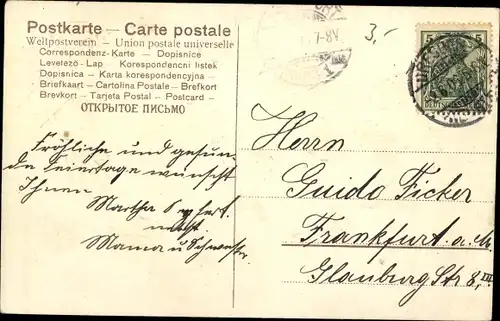 Postkarte - Carte postale
Weltpostverein - Union postale universelle
Correspondenz-Karte - Dopisnice
Levelező-Lap Korespondencni listek
Dopisnica - Karta korespondencyjna -
Briefkaart - Cartolina Postale - Brefkort
Brevkort - Tarjeta Postal - Postcard -
ОТКРЫТОЕ ПИСЬМО
7-8V
3,-
5 5
Fröhliche und gesun-
de Feiertage wünscht
Ihnen
Martha
nebst
Mama u Schwester.
Herrn
Guido Ficker
Frankfurt a. M
Glauburg Str 8, III